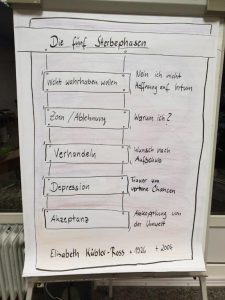 Die fünf Sterbephasen
Nicht wahrhaben wollen
Nein ich nicht
Hoffnung auf Irrtum
Zorn / Ablehnung
Warum ich?
Verhandeln
Wunsch nach
Aufschub
Depression
Trauer um
vertane Chancen
Akzeptanz
Abkopplung von
der Umwelt
Elisabeth Kübler-Ross * 1926 + 2004